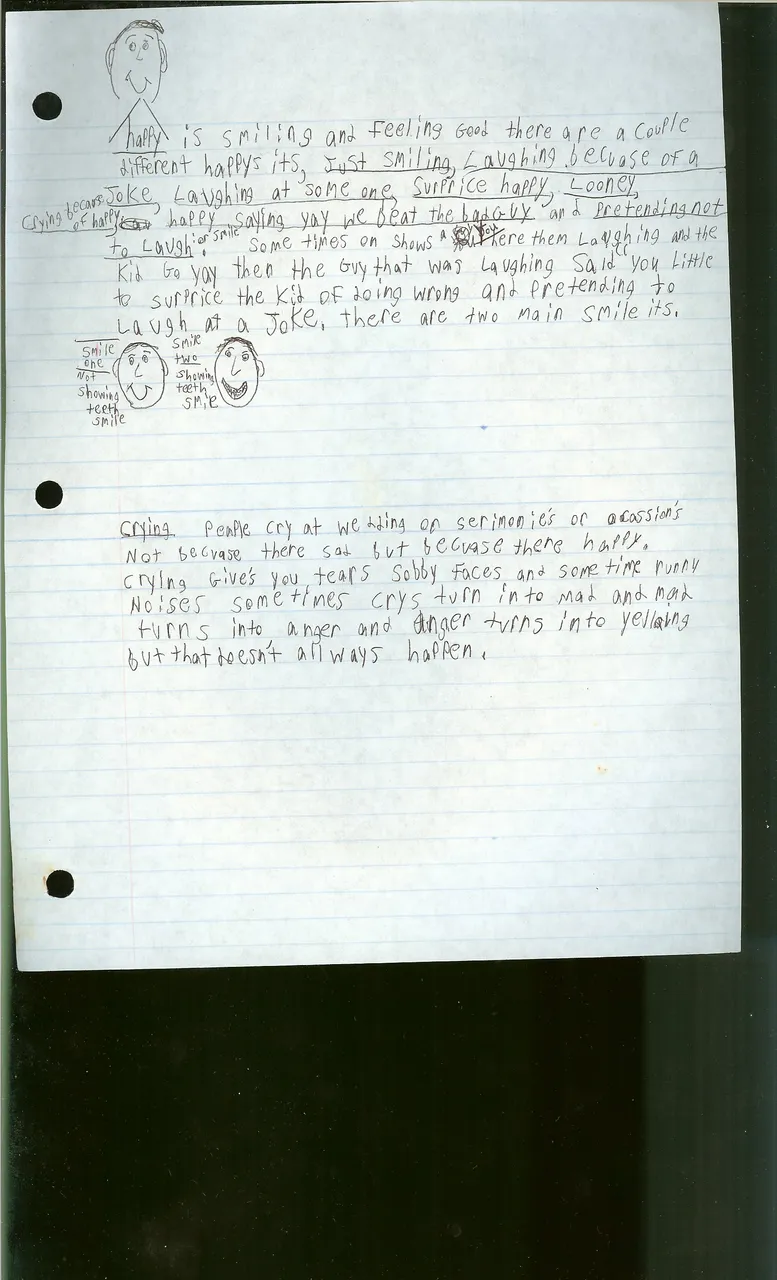 happy is smiling and Feeling Good there are a couple
different happys its, Just smiling, Laughing becuase of a
Joke, Laughing at some one, Surprice happy, Looney,
Crying because of happy, happy saying yay we beat the bad guy and Pretending not
to Laugh or smile. Some times on shows a you here them Laughing and the
Kid Go yay then the Guy that was Laughing Said "you Little
to surprice the Kid of doing wrong and Pretending to
Laugh at a Joke, there are two main smile its.
smile
one
Not
showing
teeth
smile
smile
two
showing
teeth
smile
Crying People cry at wedding or serimonie's or acassion's
Not becuase there sad but becuase there happy.
crying Give's you tears Sobby faces and some time runny
Noises some times crys turn into mad and mad
turns into anger and anger turns into yelling
but that doesn't all ways happen.